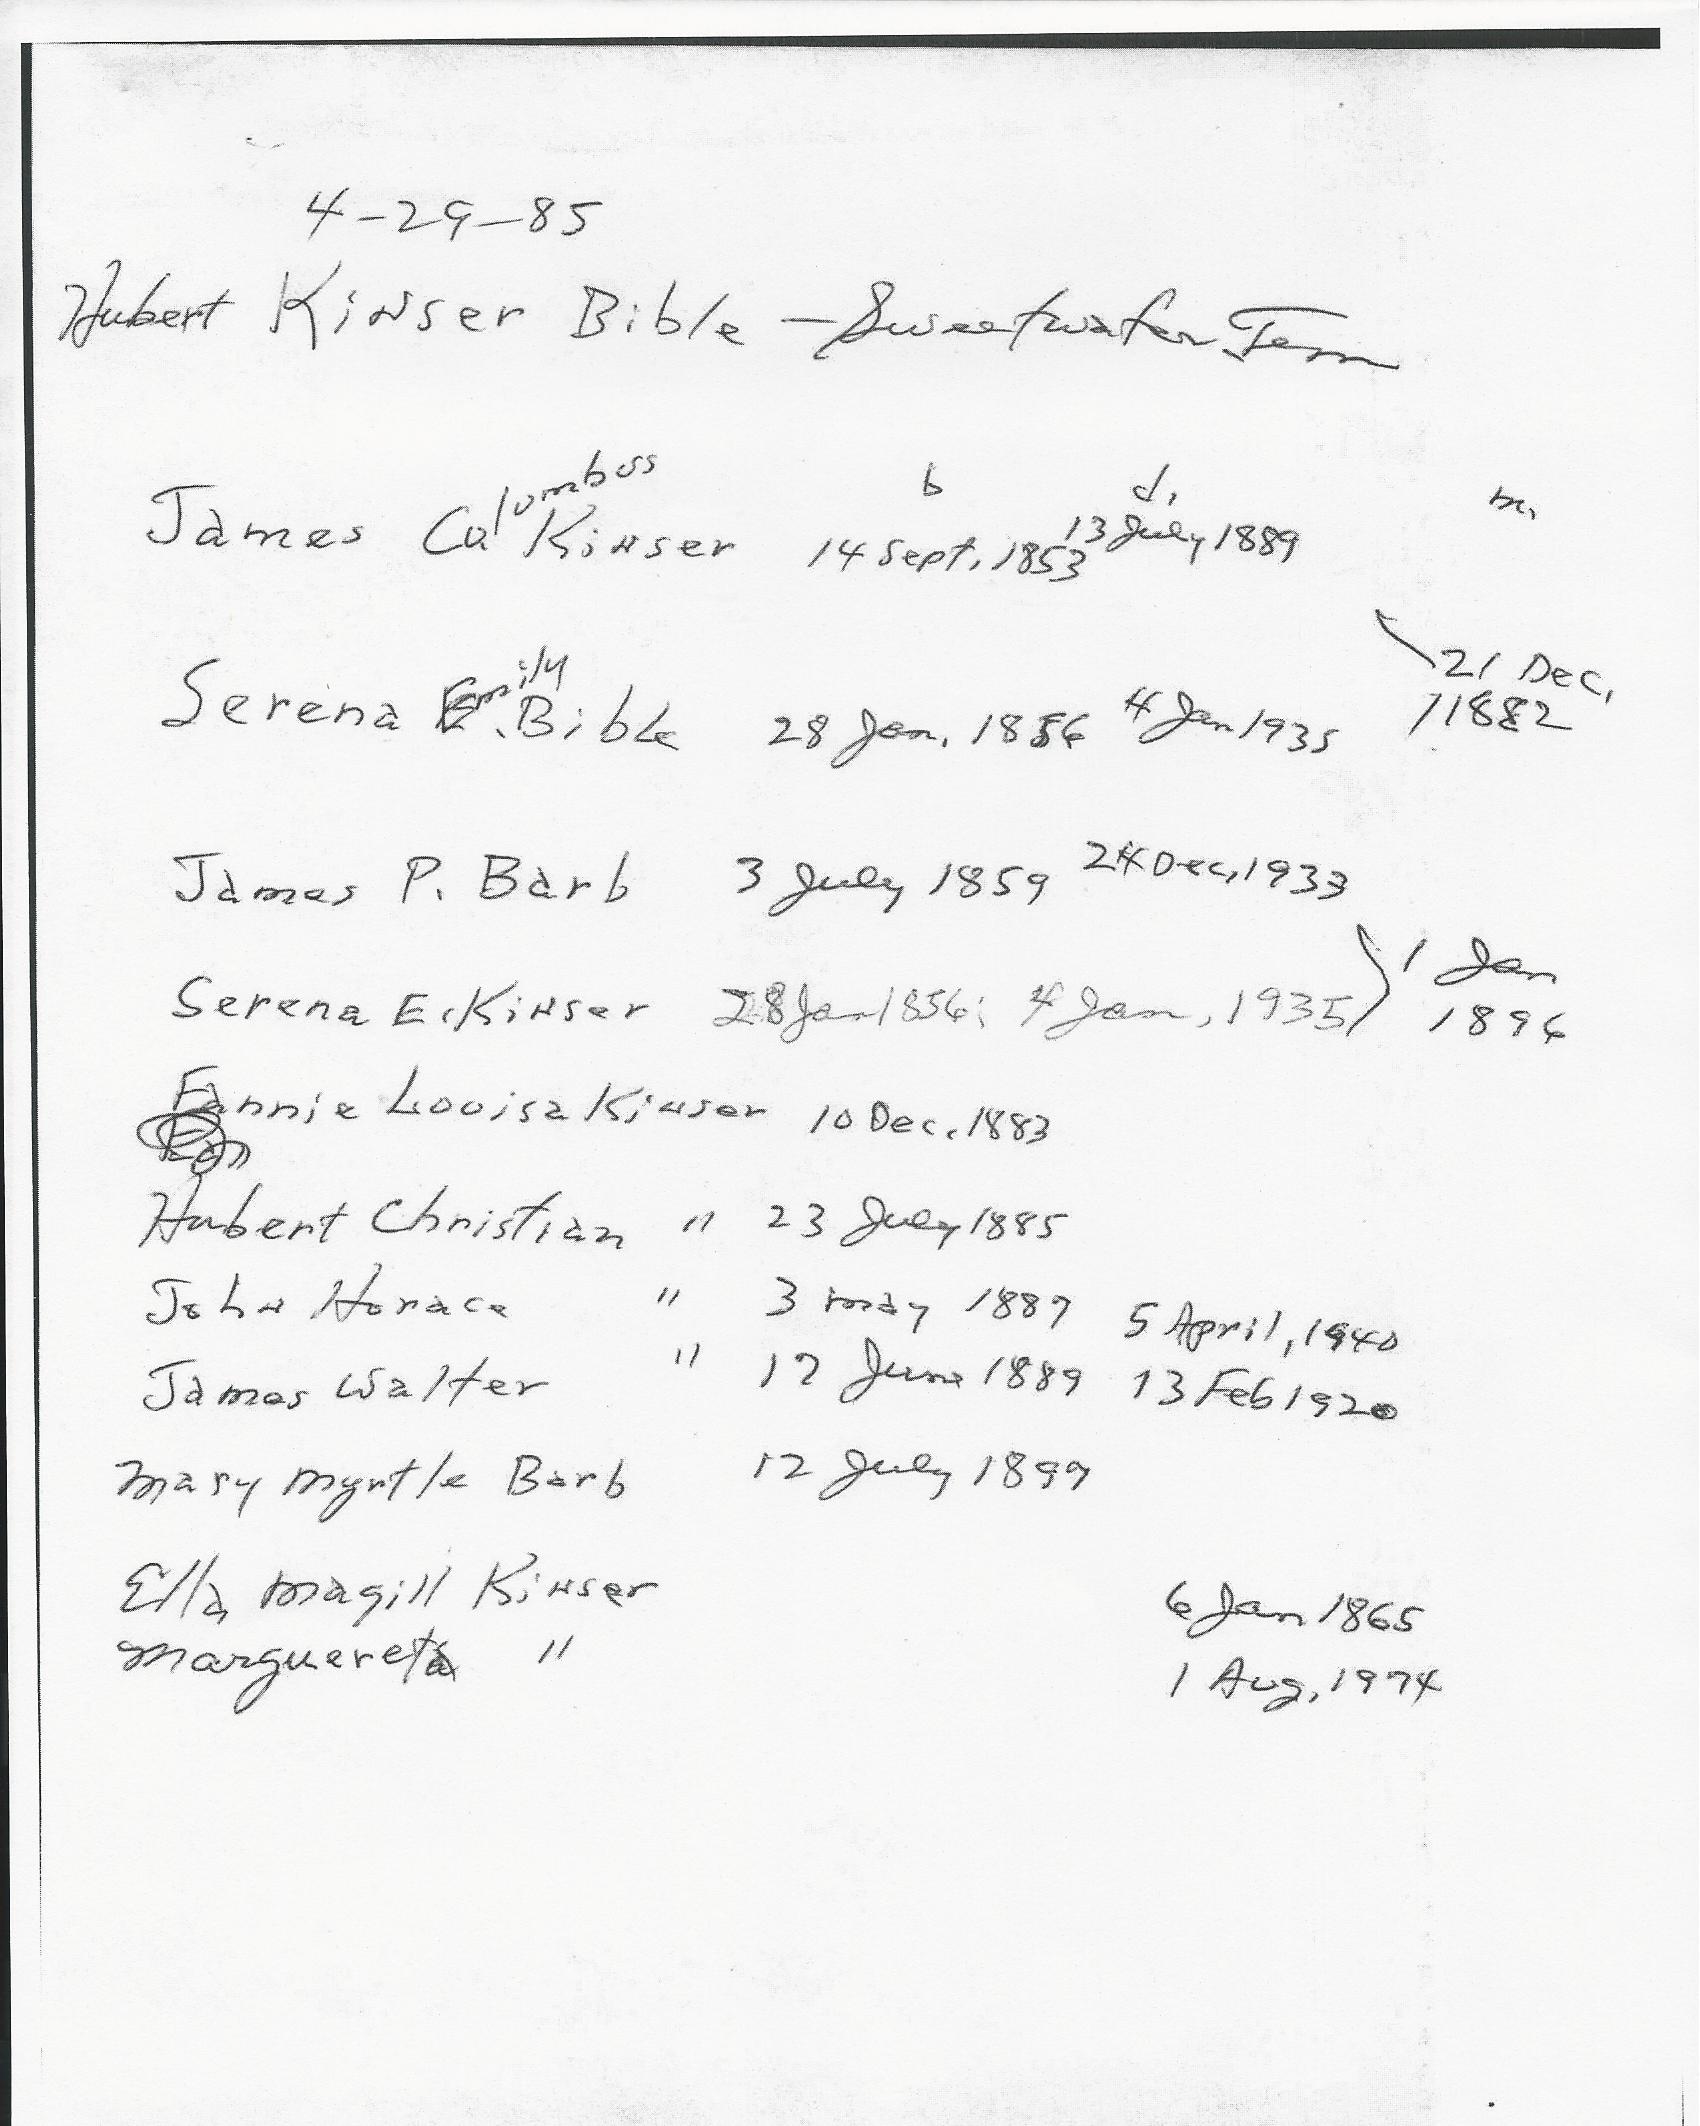 4-29-85
Hubert Kinser Bible - Sweetwater Tenn
b d. m.
James Columbuss Kinser 14 Sept. 1853 13 July 1889
21 Dec. 1882
Serena Emily Bible 28 Jan. 1856 4 Jan 1935
James P. Barb 3 July 1859 24 Dec, 1933
1 Jan 1896
Serena E. Kinser 28 Jan 1856; 4 Jan, 1935
Fannie Louisa Kinser 10 Dec. 1883
Hubert Christian " 23 July 1885
John Horace " 3 may 1887 5 April, 1940
James Walter " 17 June 1889 13 Feb 1920
Mary Myrtle Barb 12 July 1897
Ella Magill Kinser 6 Jan 1865
Marguereta " 1 Aug, 1974